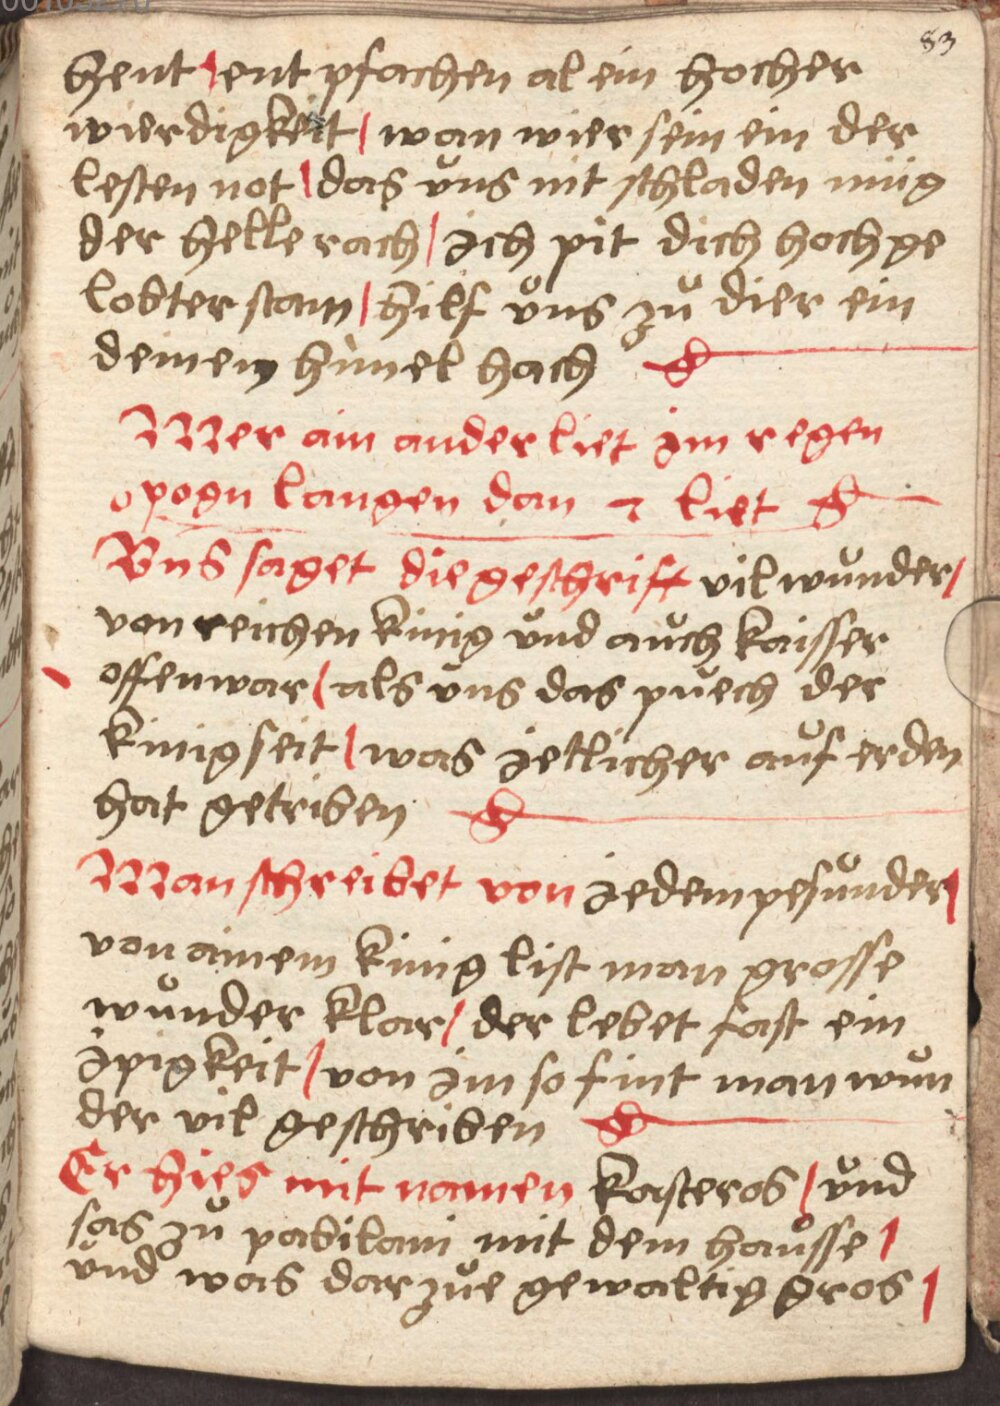 83
hent / ent pfachen al ein hocher
wierdigkeit / wan wier sein ein der
lesten not / das vns nit schladen müg
der helle rach / jch pit dich hoch ge
lobter stam / hilf vns zů dier ein
deinem himel hach
Mer ain ander liet jm regen
pogn langen dan 7 liet
Vns saget die geschrift vil wůnder /
von reichen kinig vnd aůch kaisser
offenwar / als vns das půech der
kinig seit / was jetlicher aůf erden
hat getriben
Man schreibet von jedem pesůnder /
von ainem kinig list man grosse
wůnder klar / der lebet fast ein
jpigkeit / von jm so fint man wůn
der vil geschriben
Er hies mit namen kasteros / vnd
sas zů pabilani mit dem haůsse /
vnd was dar zůe gewaltig gros /